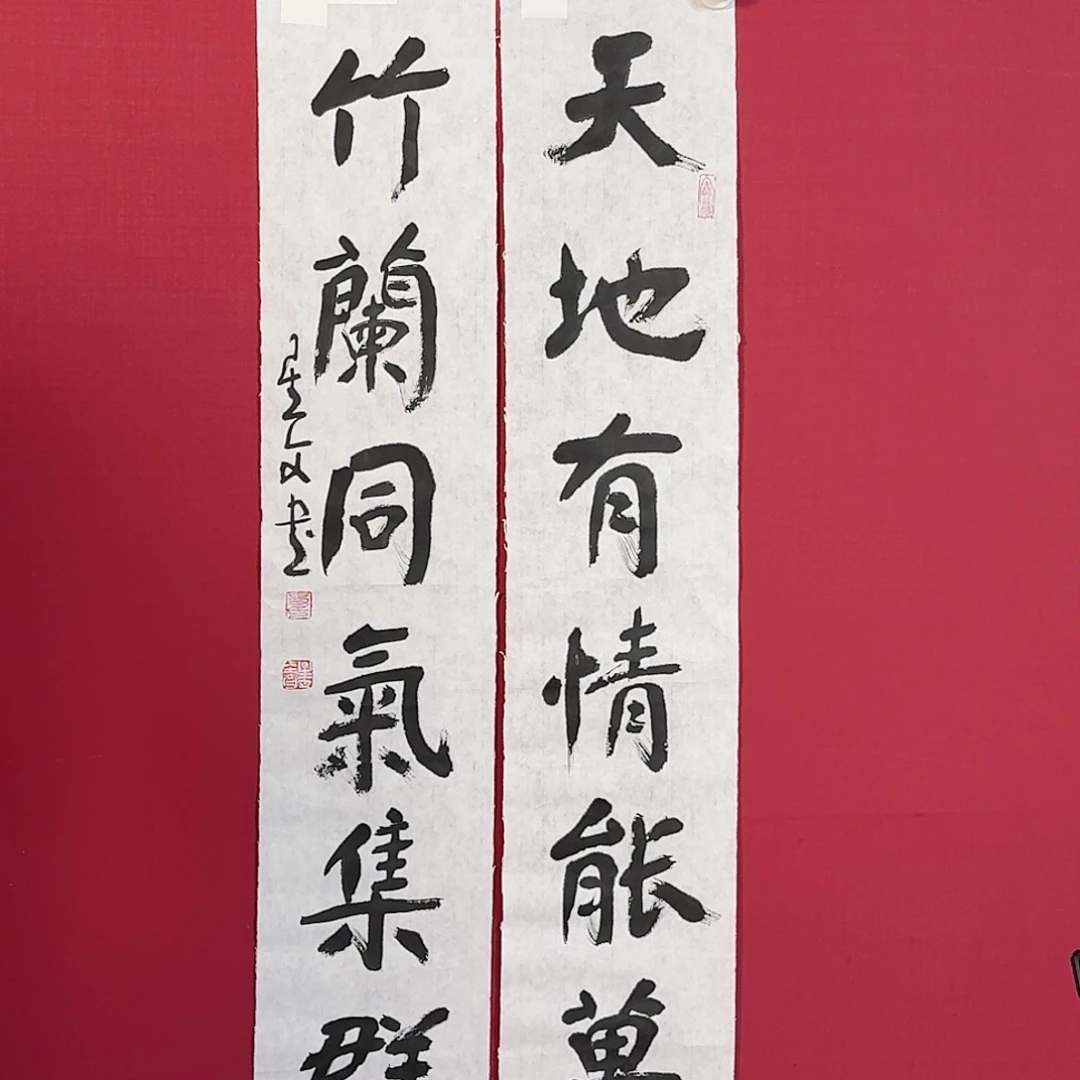 天地有情能萬
竹蘭同氣集群